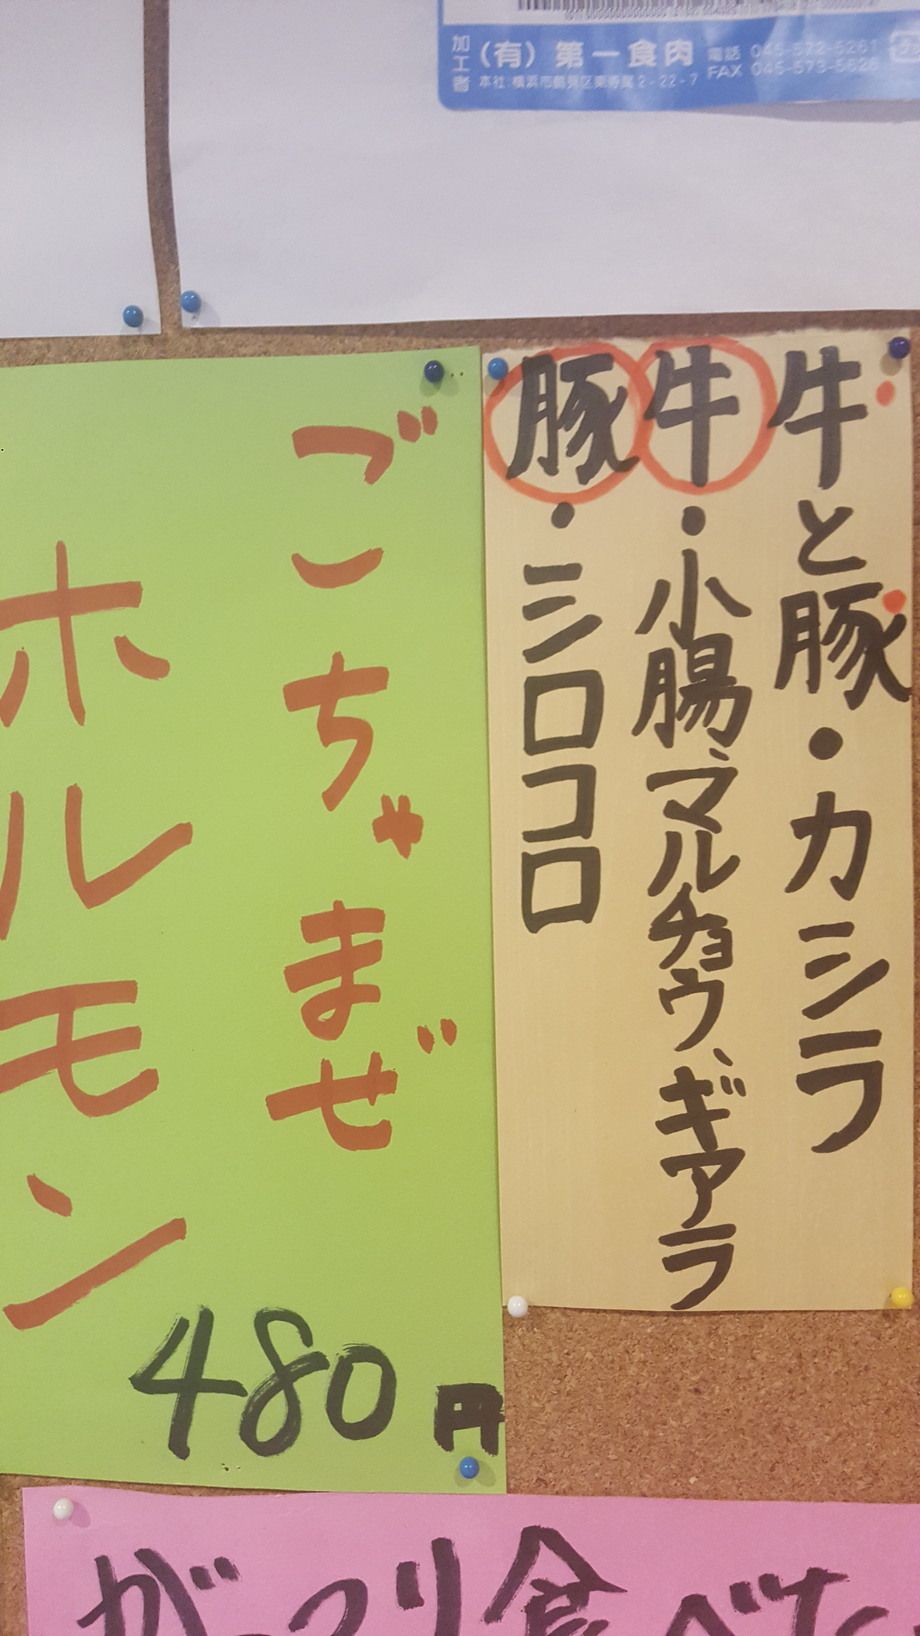 加工者 (有)第一食肉 電話 045-572-5261
本社 横浜市鶴見区東寺尾2-22-7 FAX 045-573-5628
牛と豚・カシラ
牛・小腸、マルチョウ、ギアラ
豚・シロコロ
ごちゃまぜ
ホルモン
480円
がっつり食べた